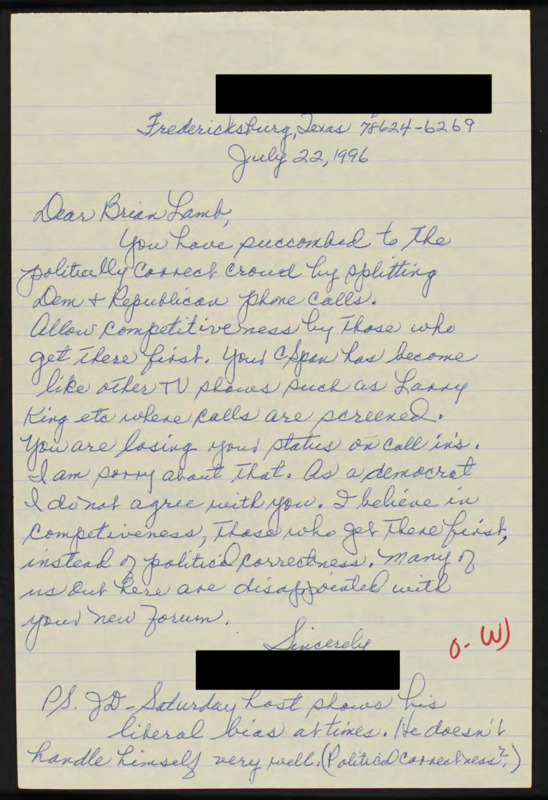 Fredericksburg, Texas 78624-6269
July 22, 1996
Dear Brian Lamb,
You have succombed to the
politically correct crowd by splitting
Dem + Republican phone calls.
Allow competitiveness by those who
get there first. Your CSpan has become
like other TV shows such as Larry
King etc where calls are screened.
You are losing your status on call in's.
I am sorry about that. As a democrat
I do not agree with you. I believe in
competiveness, those who get there first,
instead of political correctness. Many of
us out here are disappointed with
your new forum.
Sincerely
O-W)
PS. JD - Saturday host shows his
liberal bias at times. He doesn't
handle himself very well. (Political correctness?)